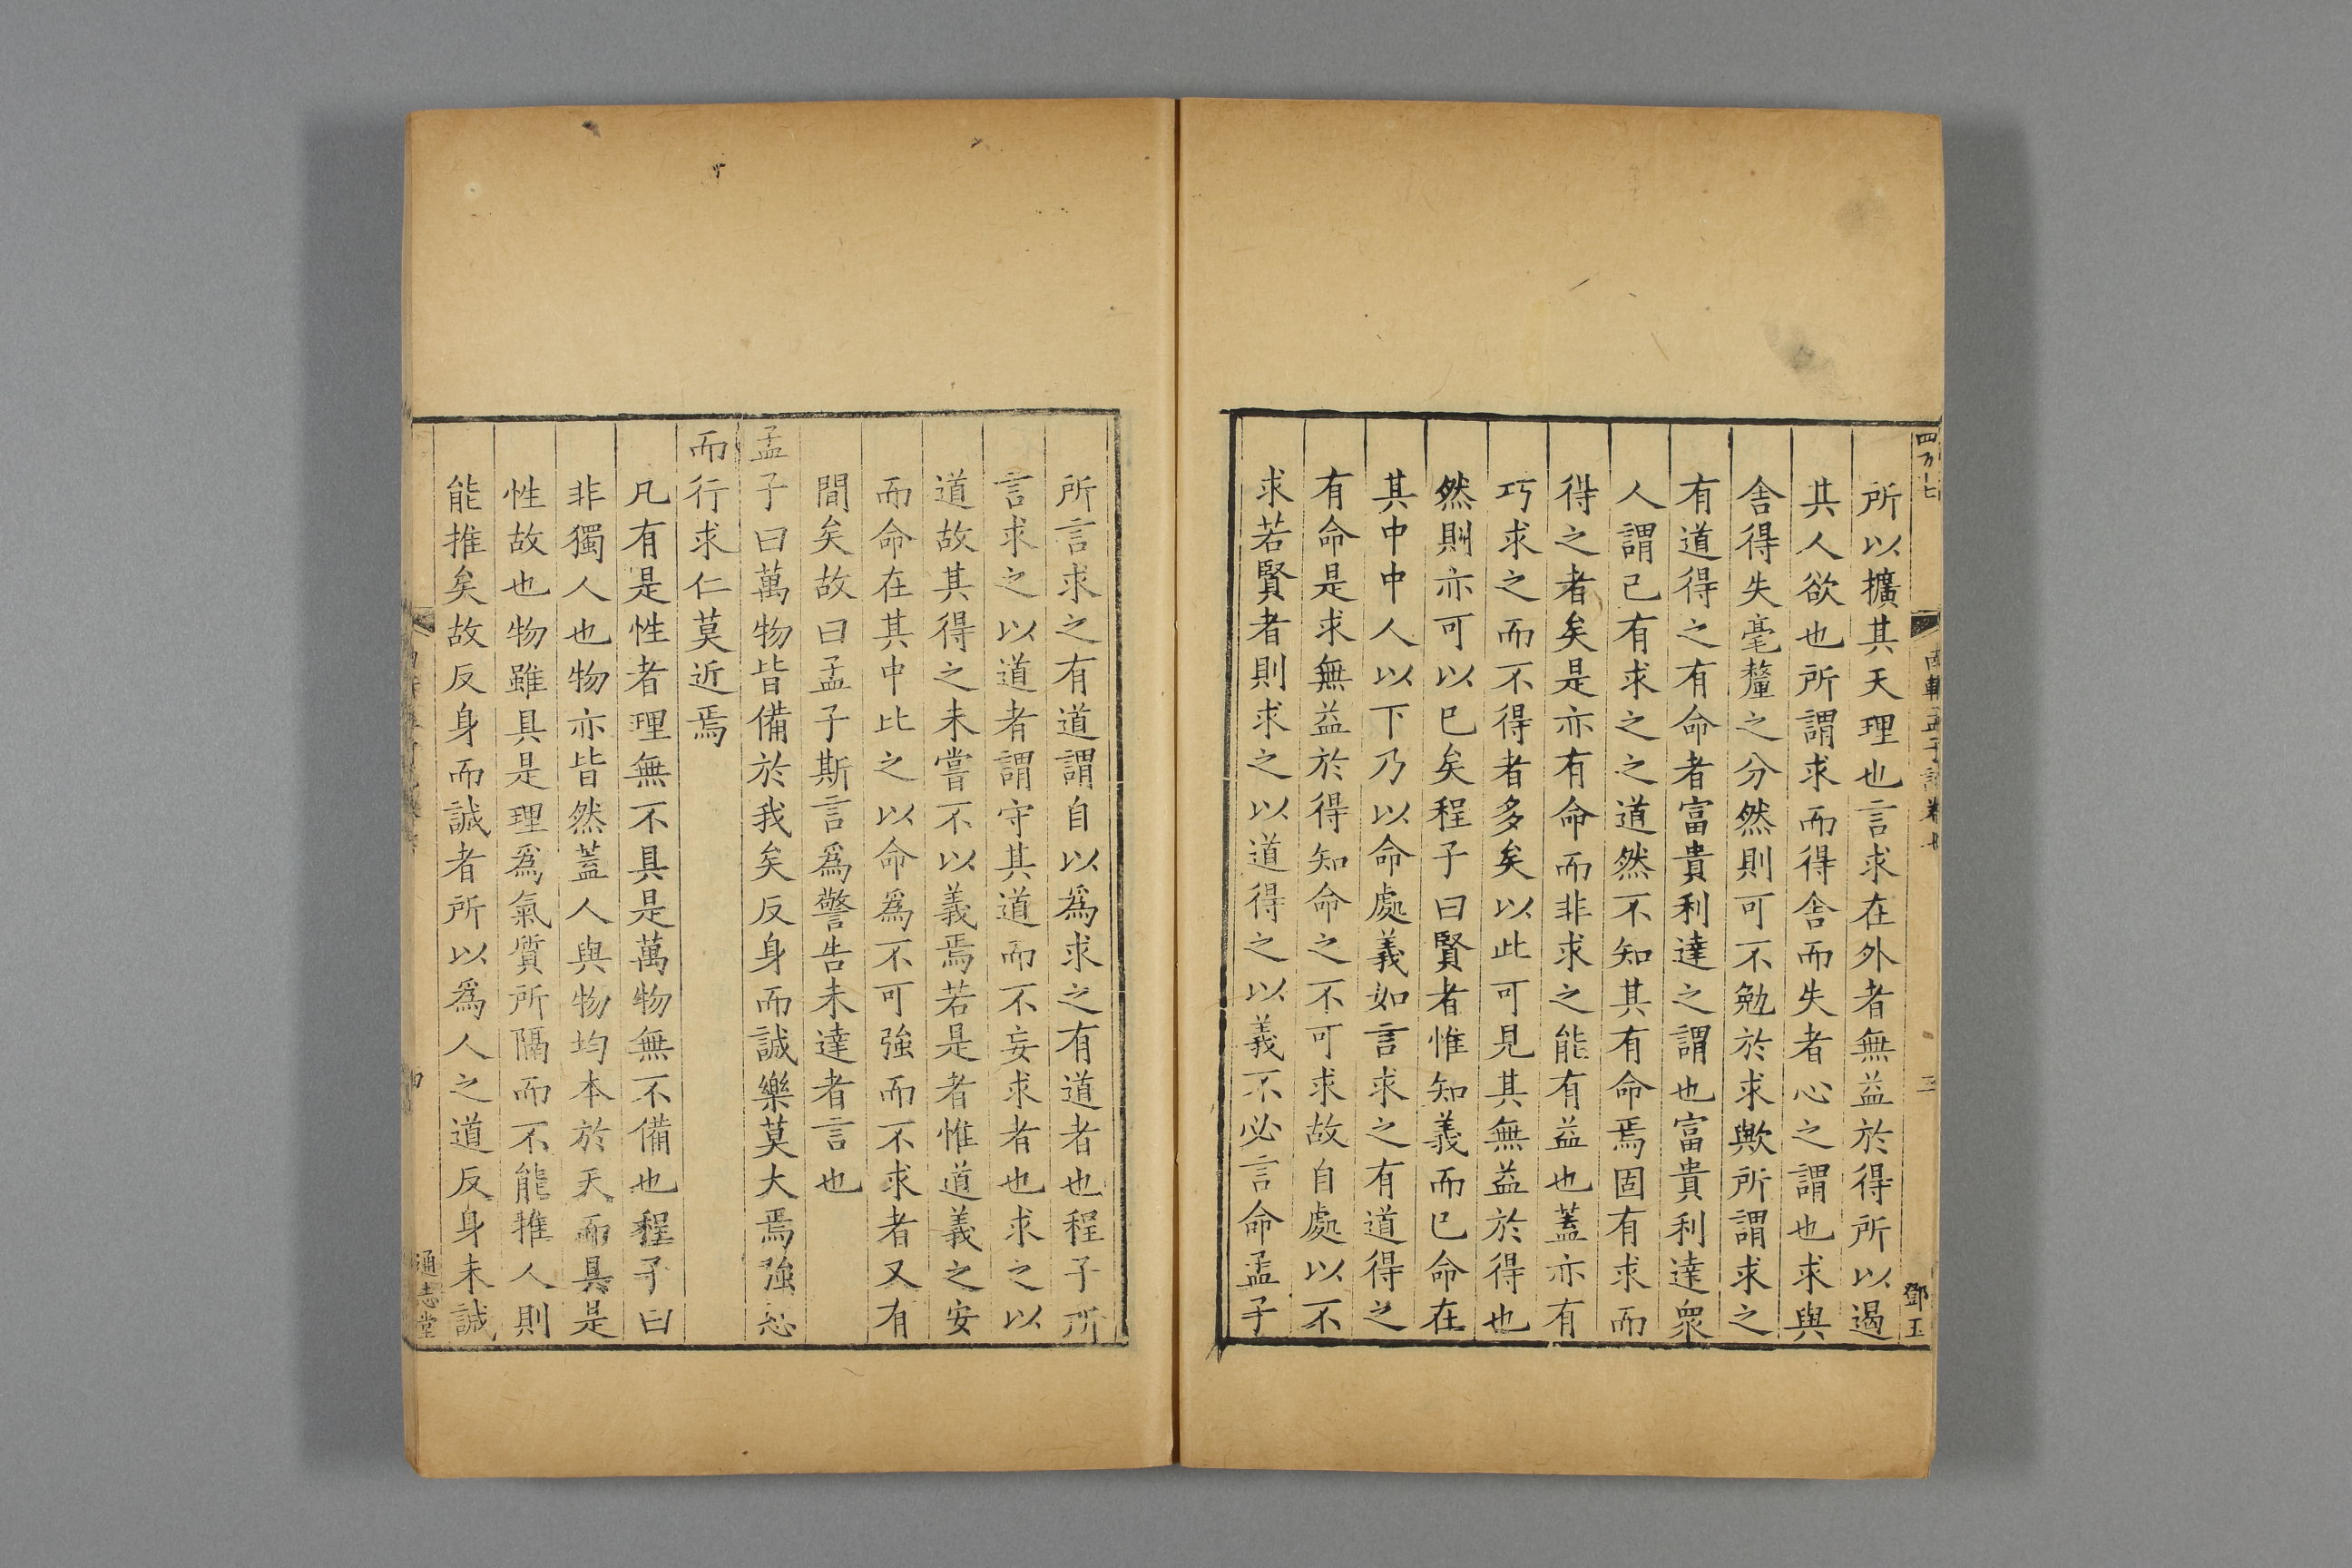 所以擴其天理也言求在外者無益於得所以遏
其人欲也所謂求而得舍而失者心之謂也求與
舍得失毫釐之分然則可不勉於求歟所謂求之
有道得之有命者富貴利達之謂也富貴利達衆
人謂已有求之之道然不知其有命焉固有求而
得之者矣是亦有命而非求之能有益也蓋亦有
巧求之而不得者多矣以此可見其無益於得也
然則亦可以已矣程子曰賢者惟知義而已命在
其中中人以下乃以命處義如言求之有道得之
有命是求無益於得知命之不可求故自處以不
求若賢者則求之以道得之以義不必言命孟子
鄧玉
所言求之有道謂自以爲求之有道者也程子所
言求之以道者謂守其道而不妄求者也求之以
道故其得之未嘗不以義焉若是者惟道義之安
而命在其中比之以命爲不可強而不求者又有
間矣故曰孟子斯言爲警告未達者言也
孟子曰萬物皆備於我矣反身而誠樂莫大焉強恕
而行求仁莫近焉
凡有是性者理無不具是萬物無不備也程子曰
非獨人也物亦皆然蓋人與物均本於天而具是
性故也物雖具是理爲氣質所隔而不能推人則
能推矣故反身而誠者所以爲人之道反身未誠
通志堂